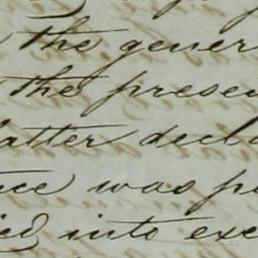 the gener
the presen
latter decla
ice was pe
ied into exe